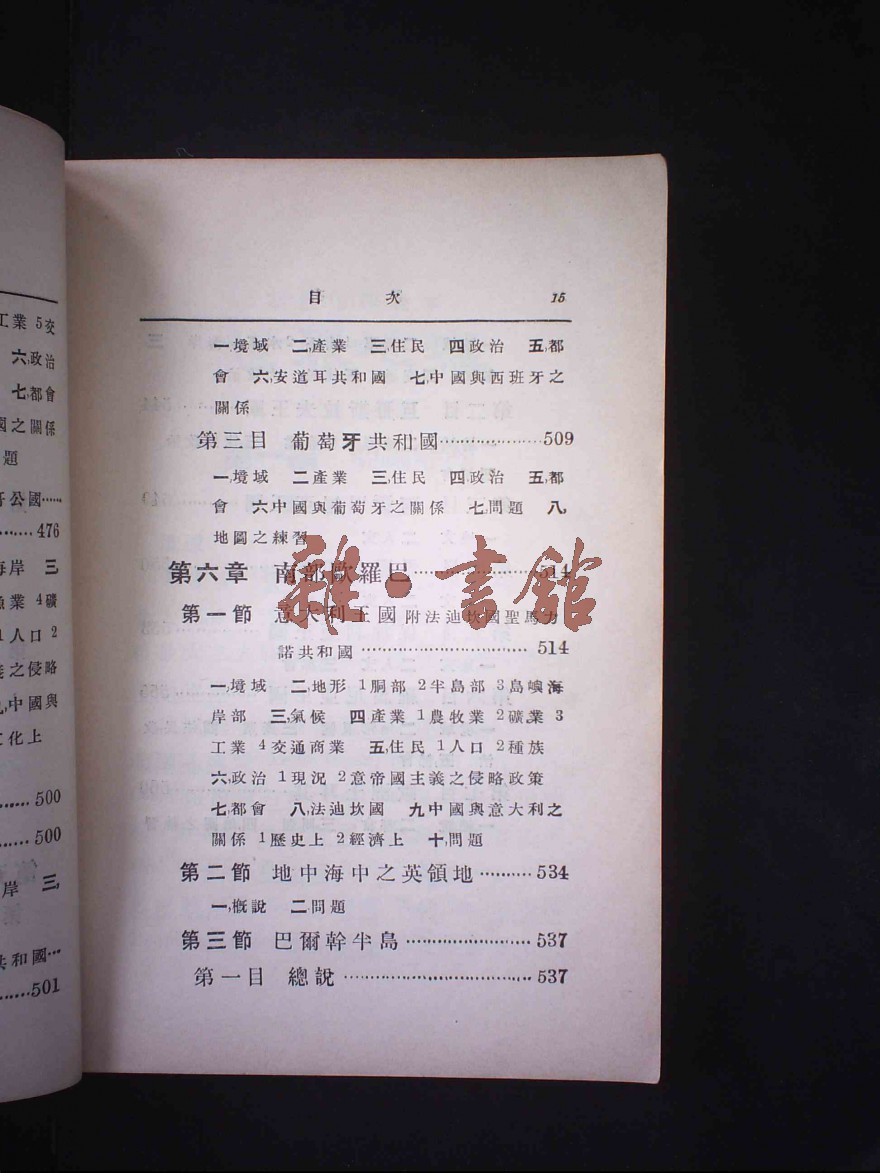 工業 5交
六,政治
七,都會
國之關係
題
牙公國……
……476
海岸 三,
漁業 4礦
1人口 2
義之侵略
九,中國與
文化上
……500
……500
岸 三,
共和國…
……501
目 次 15
一,境域 二,產業 三,住民 四,政治 五,都
會 六,安道耳共和國 七,中國與西班牙之
關係
第三目 葡萄牙共和國……509
一,境域 二,產業 三,住民 四,政治 五,都
會 六,中國與葡萄牙之關係 七,問題 八,
地圖之練習
第六章 南部歐羅巴……514
雜·書館
第一節 意大利王國 附法迪坎國聖馬力
諾共和國……514
一,境域 二,地形 1胴部 2半島部 3島嶼海
岸部 三,氣候 四,產業 1農牧業 2礦業 3
工業 4交通商業 五,住民 1人口 2種族
六,政治 1現況 2意帝國主義之侵略政策
七,都會 八,法迪坎國 九,中國與意大利之
關係 1歷史上 2經濟上 十,問題
第二節 地中海中之英領地……534
一,概說 二,問題
第三節 巴爾幹半島……537
第一目 總說……537